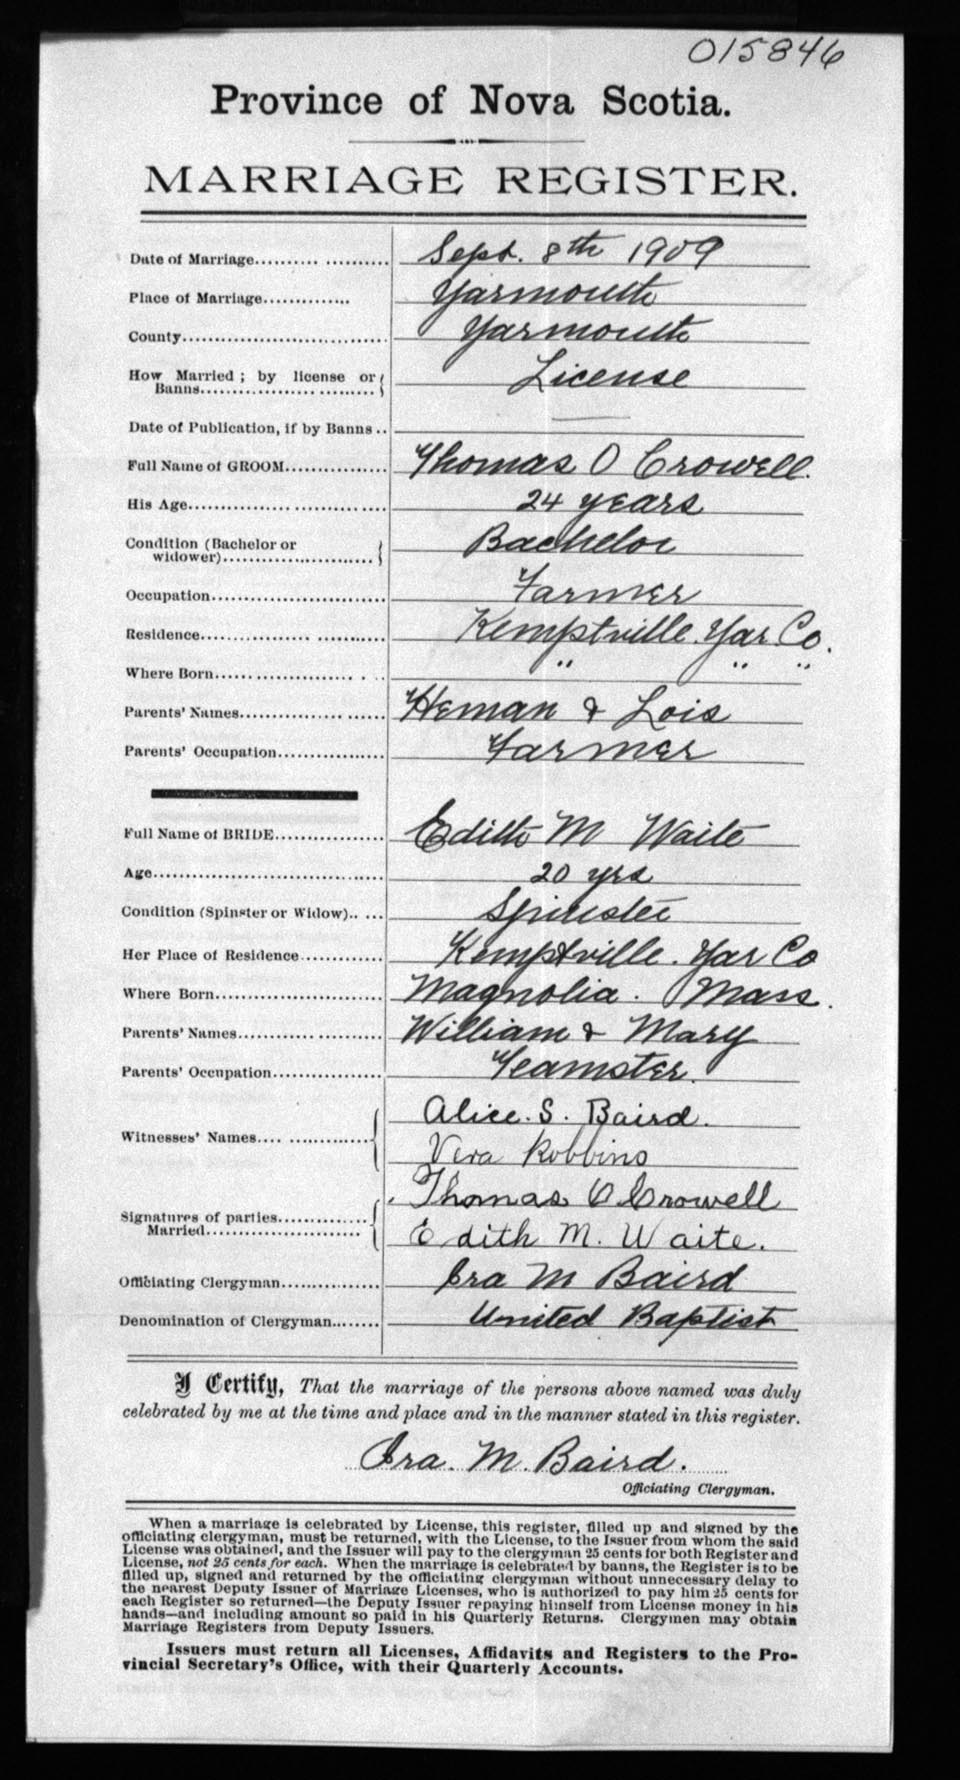 015846
Province of Nova Scotia.
MARRIAGE REGISTER.
Date of Marriage.................... Sept. 8th 1909
Place of Marriage.............. Yarmouth
County................................ Yarmouth
How Married; by license or
Banns........................ License
Date of Publication, if by Banns.. ——
Full Name of GROOM................ Thomas O Crowell.
His Age................................ 24 years
Condition (Bachelor or
widower)........................ Bachelor
Occupation............................ Farmer
Residence............................ Kemptville. Yar Co.
Where Born........................ " " "
Parents' Names.................... Heman & Lois
Parents' Occupation................ Farmer
Full Name of BRIDE................ Edith M Waite
Age.................................... 20 yrs
Condition (Spinster or Widow)..... Spinster
Her Place of Residence............ Kemptville. Yar Co
Where Born........................ Magnolia. Mass.
Parents' Names.................... William & Mary
Parents' Occupation................ Teamster.
Alice. S. Baird.
Witnesses' Names.................
Vera Robbins
Thomas O Crowell
Signatures of parties..............
Married........................ Edith M. Waite.
Officiating Clergyman.............. Ira M Baird
Denomination of Clergyman........ United Baptist
I Certify, That the marriage of the persons above named was duly
celebrated by me at the time and place and in the manner stated in this register.
Ira. M. Baird.
Officiating Clergyman.
When a marriage is celebrated by License, this register, filled up and signed by the
officiating clergyman, must be returned, with the License, to the Issuer from whom the said
License was obtained, and the Issuer will pay to the clergyman 25 cents for both Register and
License, not 25 cents for each. When the marriage is celebrated by banns, the Register is to be
filled up, signed and returned by the officiating clergyman without unnecessary delay to
the nearest Deputy Issuer of Marriage Licenses, who is authorized to pay him 25 cents for
each Register so returned—the Deputy Issuer repaying himself from License money in his
hands—and including amount so paid in his Quarterly Returns. Clergymen may obtain
Marriage Registers from Deputy Issuers.
Issuers must return all Licenses, Affidavits and Registers to the Pro-
vincial Secretary's Office, with their Quarterly Accounts.